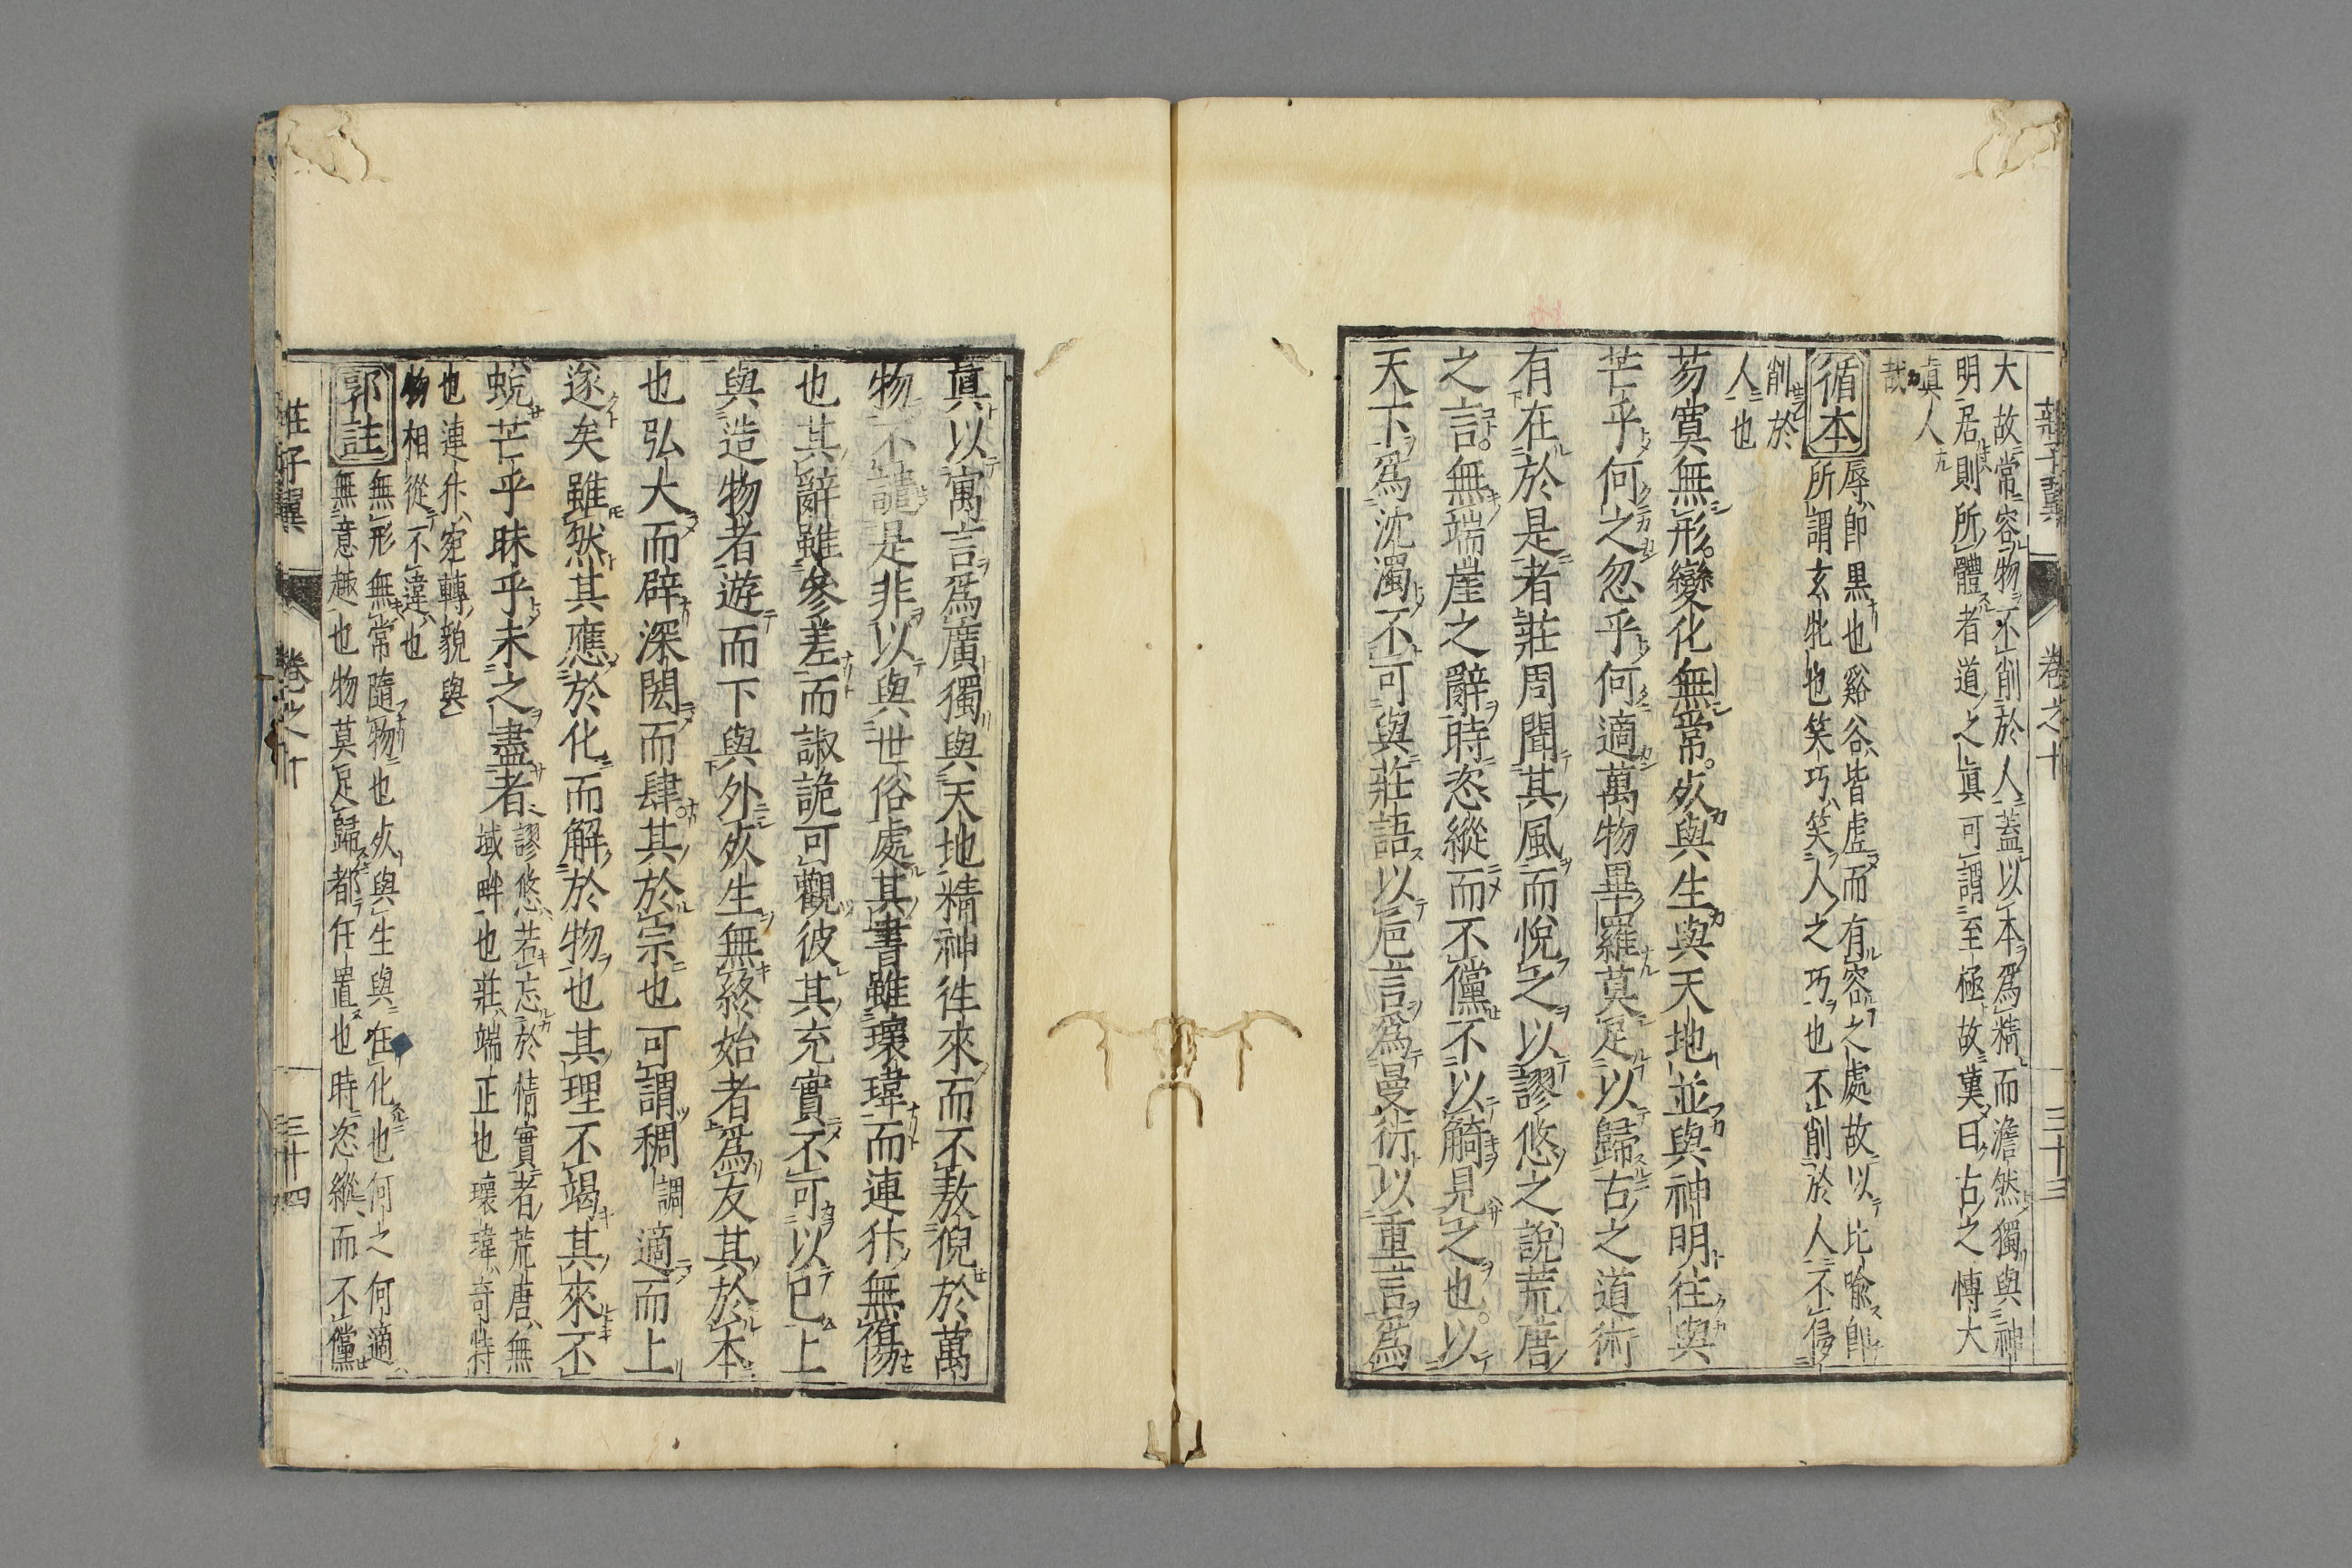 莊子翼 卷之十 三十三
大故常容物不削於人蓋以本爲精而澹然獨與神
明居則所體者道之眞可謂至極故冀曰古之博大
眞人
哉
循本
辱即黒也谿谷皆虚而有容之處故以比喩即
所謂玄牝也笑巧笑人之巧也不削於人不侵
削於
人也
芴寞無形。變化無常。死與生與天地並與神明往與
芒乎何之忽乎何適萬物畢羅莫足以歸古之道術
有在於是者莊周聞其風而悅之以謬悠之說荒唐
之言。無端崖之辭時恣縱而不儻不以觭見之也。以
天下爲沈濁不可與莊語以巵言爲曼衍以重言爲
眞以寓言爲廣獨與天地精神往來而不敖倪於萬
物不譴是非以與世俗處其書雖瓌瑋而連犿無傷
也其辭雖參差而諔詭可觀彼其充實不可以已上
與造物者遊而下與外死生無終始者爲友其於本
也弘大而辟深閎而肆。其於宗也可謂稠調適而上
遂矣雖然其應於化而解於物也其理不竭其來不
蛻芒乎昧乎未之盡者
謬悠若忘於情實者荒唐無
域畔也莊端正也瓌瑋奇特
也連犿宛轉貌與
物相從不違也
郭註
無形無常隨物也死與生與在化也何之何適
無意趣也物莫足歸都任置也時恣縱而不儻
莊子翼 卷之十 三十四